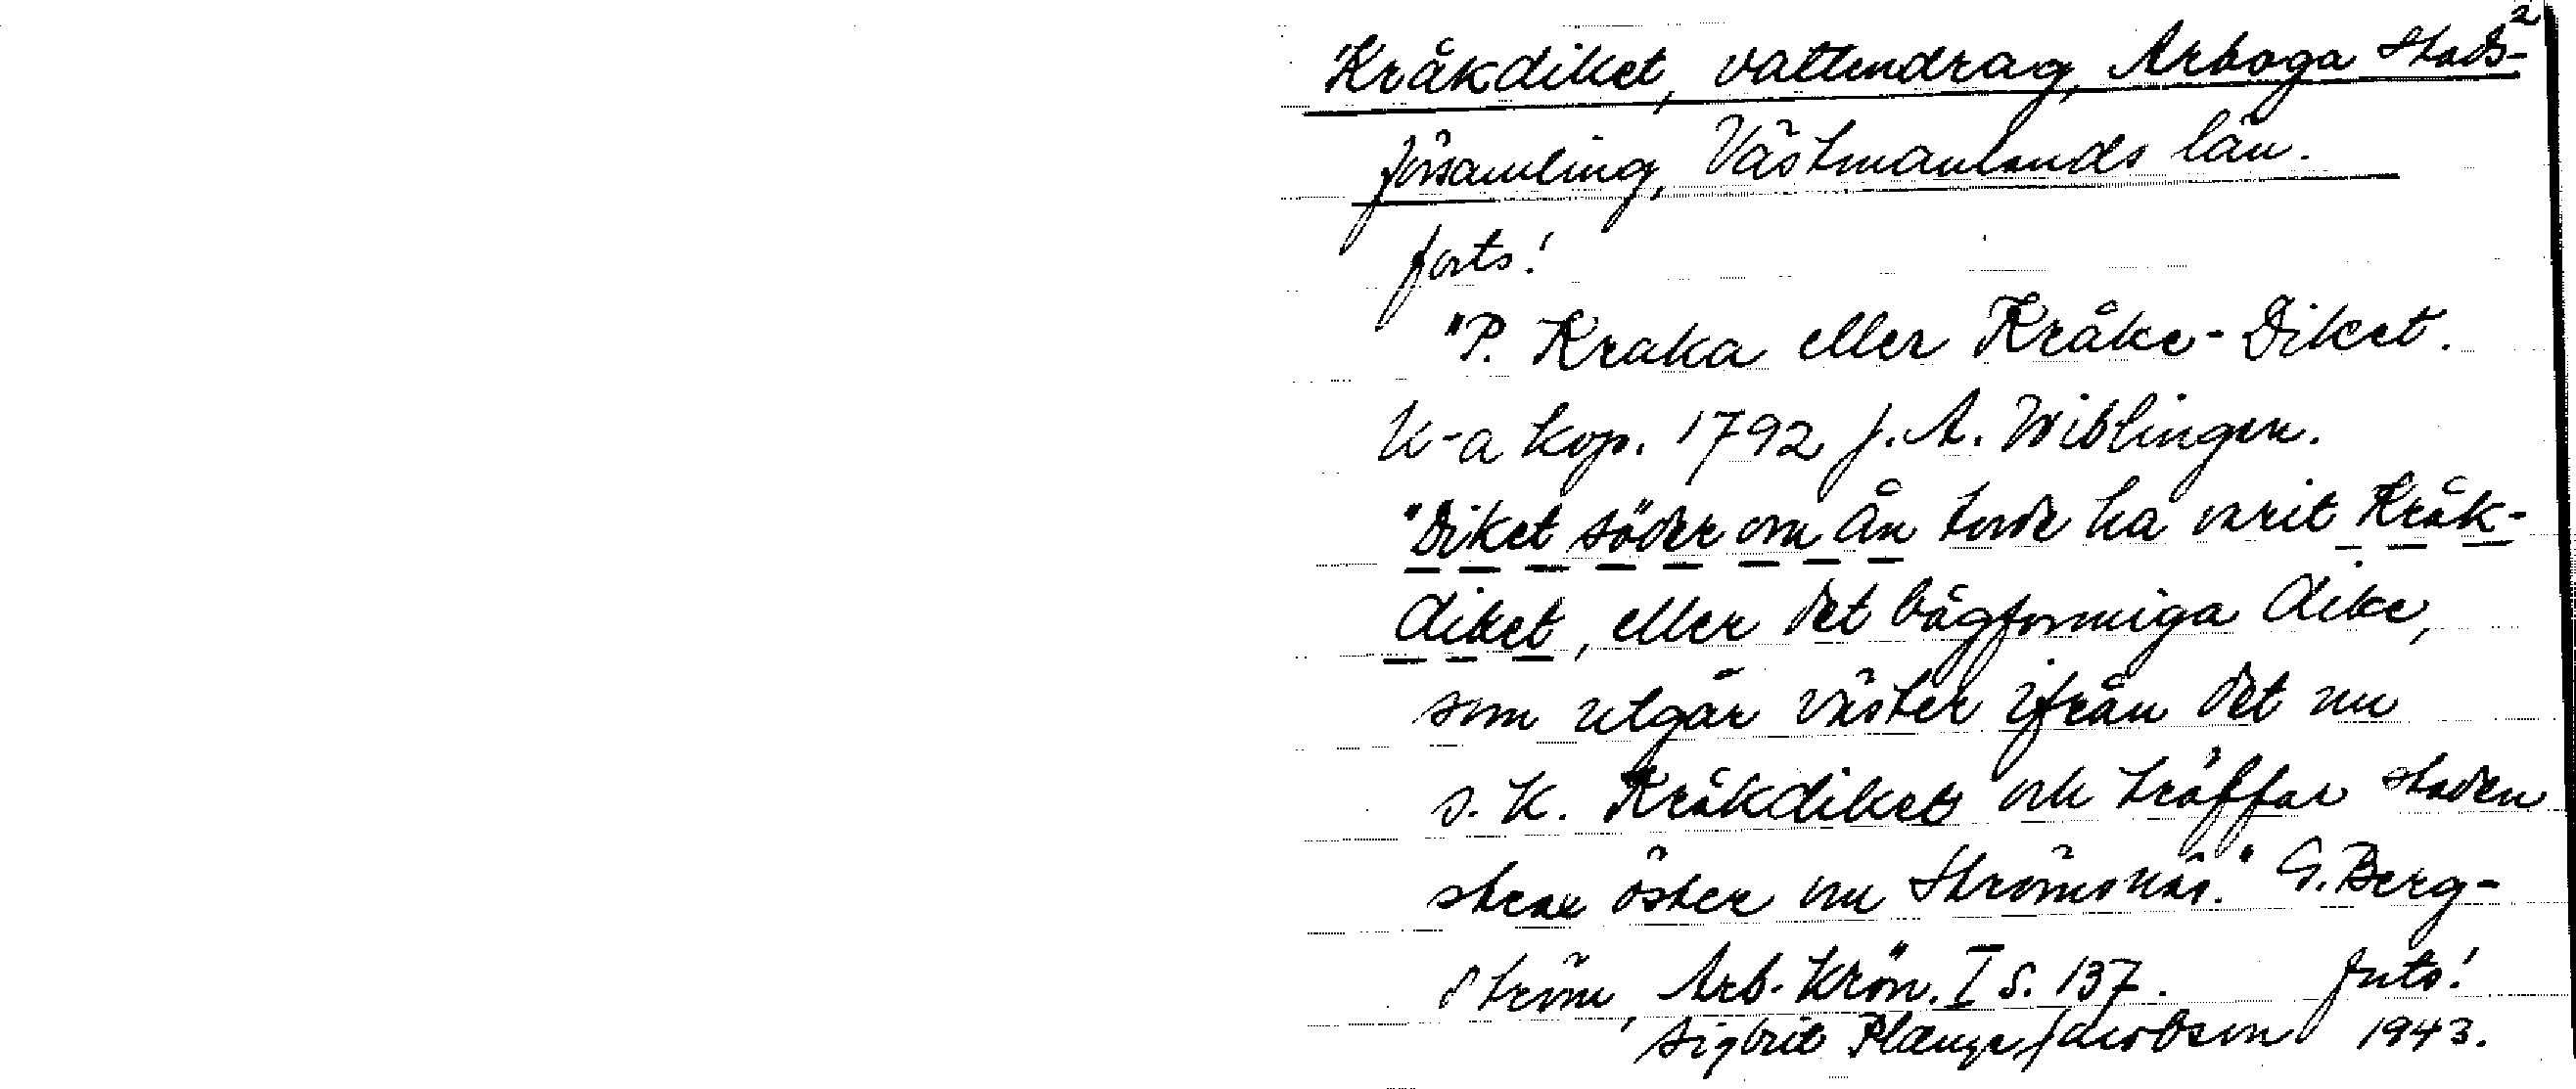 2
Kråkdiket, vattendrag, Arboga Stads-
församling, Västmanlands län.
forts!
"P. Kraka eller Kråke-Diket.
K-a kop. 1792 J. A. Wiblingen.
"Diket söder om ån torde ha varit Kråk-
diket, eller det bågformiga dike,
som utgår väster ifrån det nu
s.k. Kråkdiket och träffar staden
strax öster om Strömsnäs." G. Berg-
ström, Arb. Krön. I s. 137. forts!
Sigbrit Plænge Jacobson 1943.